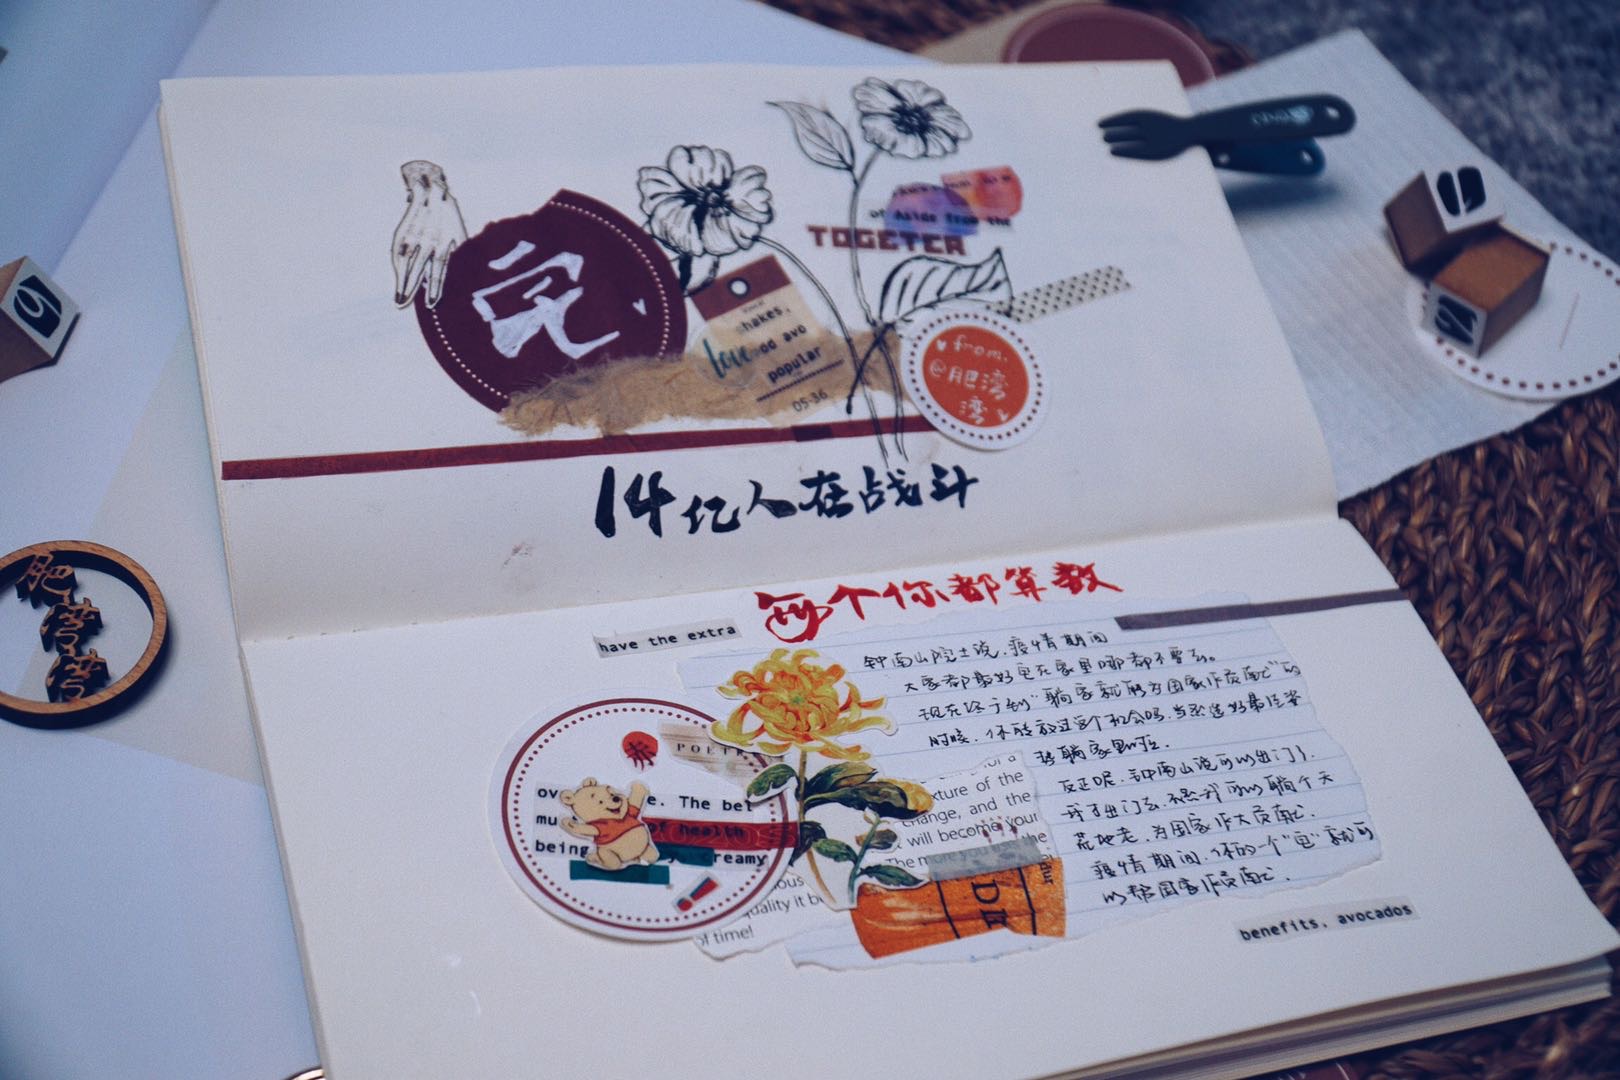 宅
TOGETER
of Aside from the
hakes,
love oo avo
popular
05-36
from.
@肥湾
湾
14亿人在战斗
每个你都算数
have the extra
钟南山院士说,疫情期间
大家都最好宅在家里哪都不要去。
现在终于到"躺家就能为国家作贡献"的
时候,你能放过这个机会吗,当然选好最佳姿
势躺家里啦。
反正呢,钟南山说可以出门了,
我才出门去,不然我可以躺个天
荒地老,为国家作大贡献。
疫情期间,你的一个"宅"就可
以帮国家作贡献。
POETR
ov e. The bet
mu of health
being y creamy
xture of the
change, and the
will become your
The more you use the
uality it b
of time!
benefits, avocados
肥
湾
湾